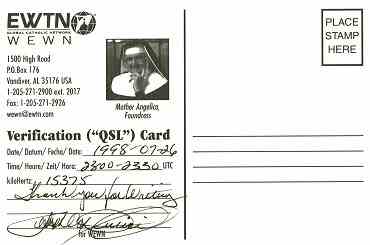 EWTN
GLOBAL CATHOLIC NETWORK
WEWN
1500 High Road
P.O.Box 176
Vandiver, AL 35176 USA
1-205-271-2900 ext. 2017
Fax: 1-205-271-2926
wewn@ewtn.com
Mother Angelica,
Foundress
PLACE
STAMP
HERE
Verification ("QSL") Card
Date/ Datum/ Fecha/ Date: 1998-07-26
Time/ Heure/ Zeit/ Hora: 2300-2330 UTC
kiloHertz: 15375
Thank you for Writing
for WEWN